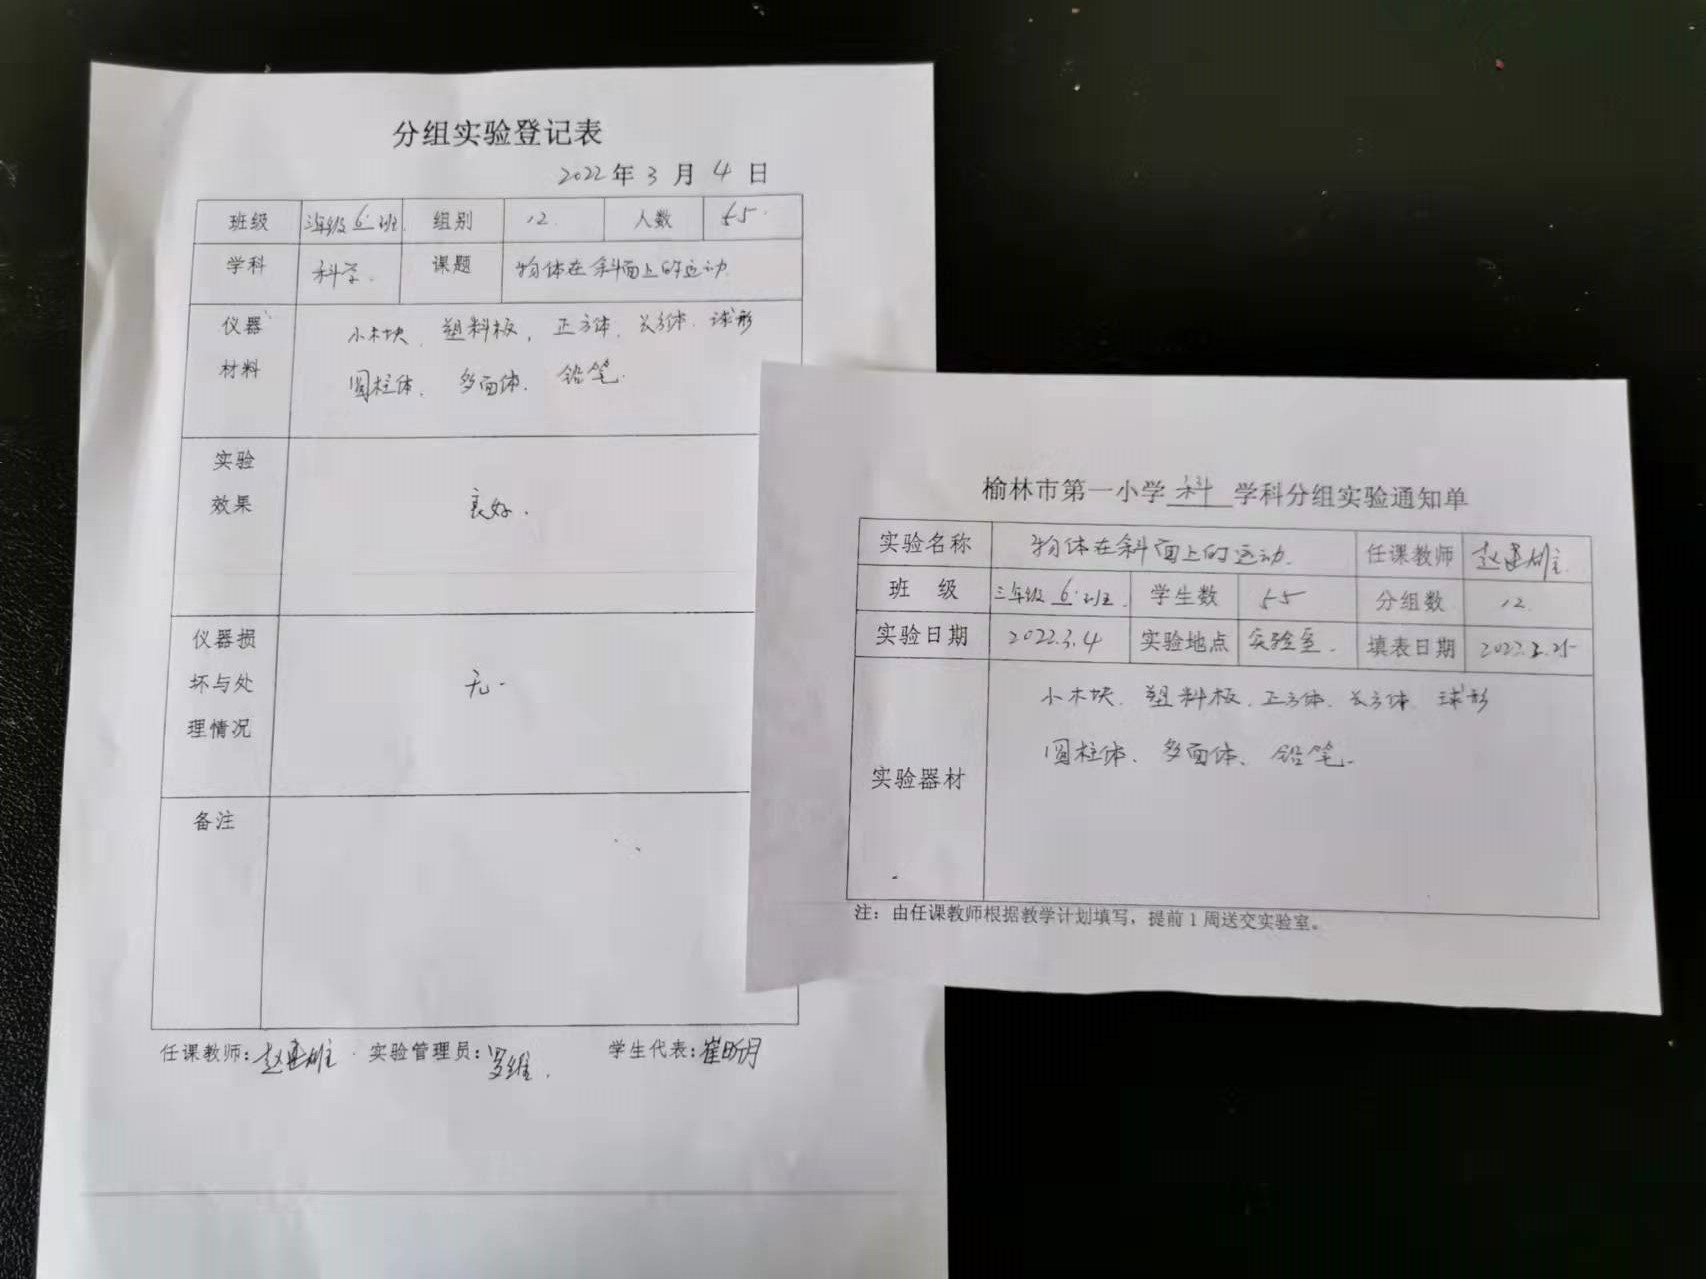 分组实验登记表
2022年3月4日
班级 三年级6班 组别 12 人数 55
学科 科学 课题 物体在斜面上的运动
仪器材料 小木块、塑料板、正方体、长方体、球形
圆柱体、多面体、铅笔
实验效果 良好
仪器损坏与处理情况 无
备注
任课教师:赵建雄 实验管理员:罗维 学生代表:崔昕月
榆林市第一小学科学科分组实验通知单
实验名称 物体在斜面上的运动 任课教师 赵建雄
班级 三年级6班 学生数 55 分组数 12
实验日期 2022.3.4 实验地点 实验室 填表日期
实验器材 小木块、塑料板、正方体、长方体、球形
圆柱体、多面体、铅笔
注:由任课教师根据教学计划填写,提前1周送交实验室。